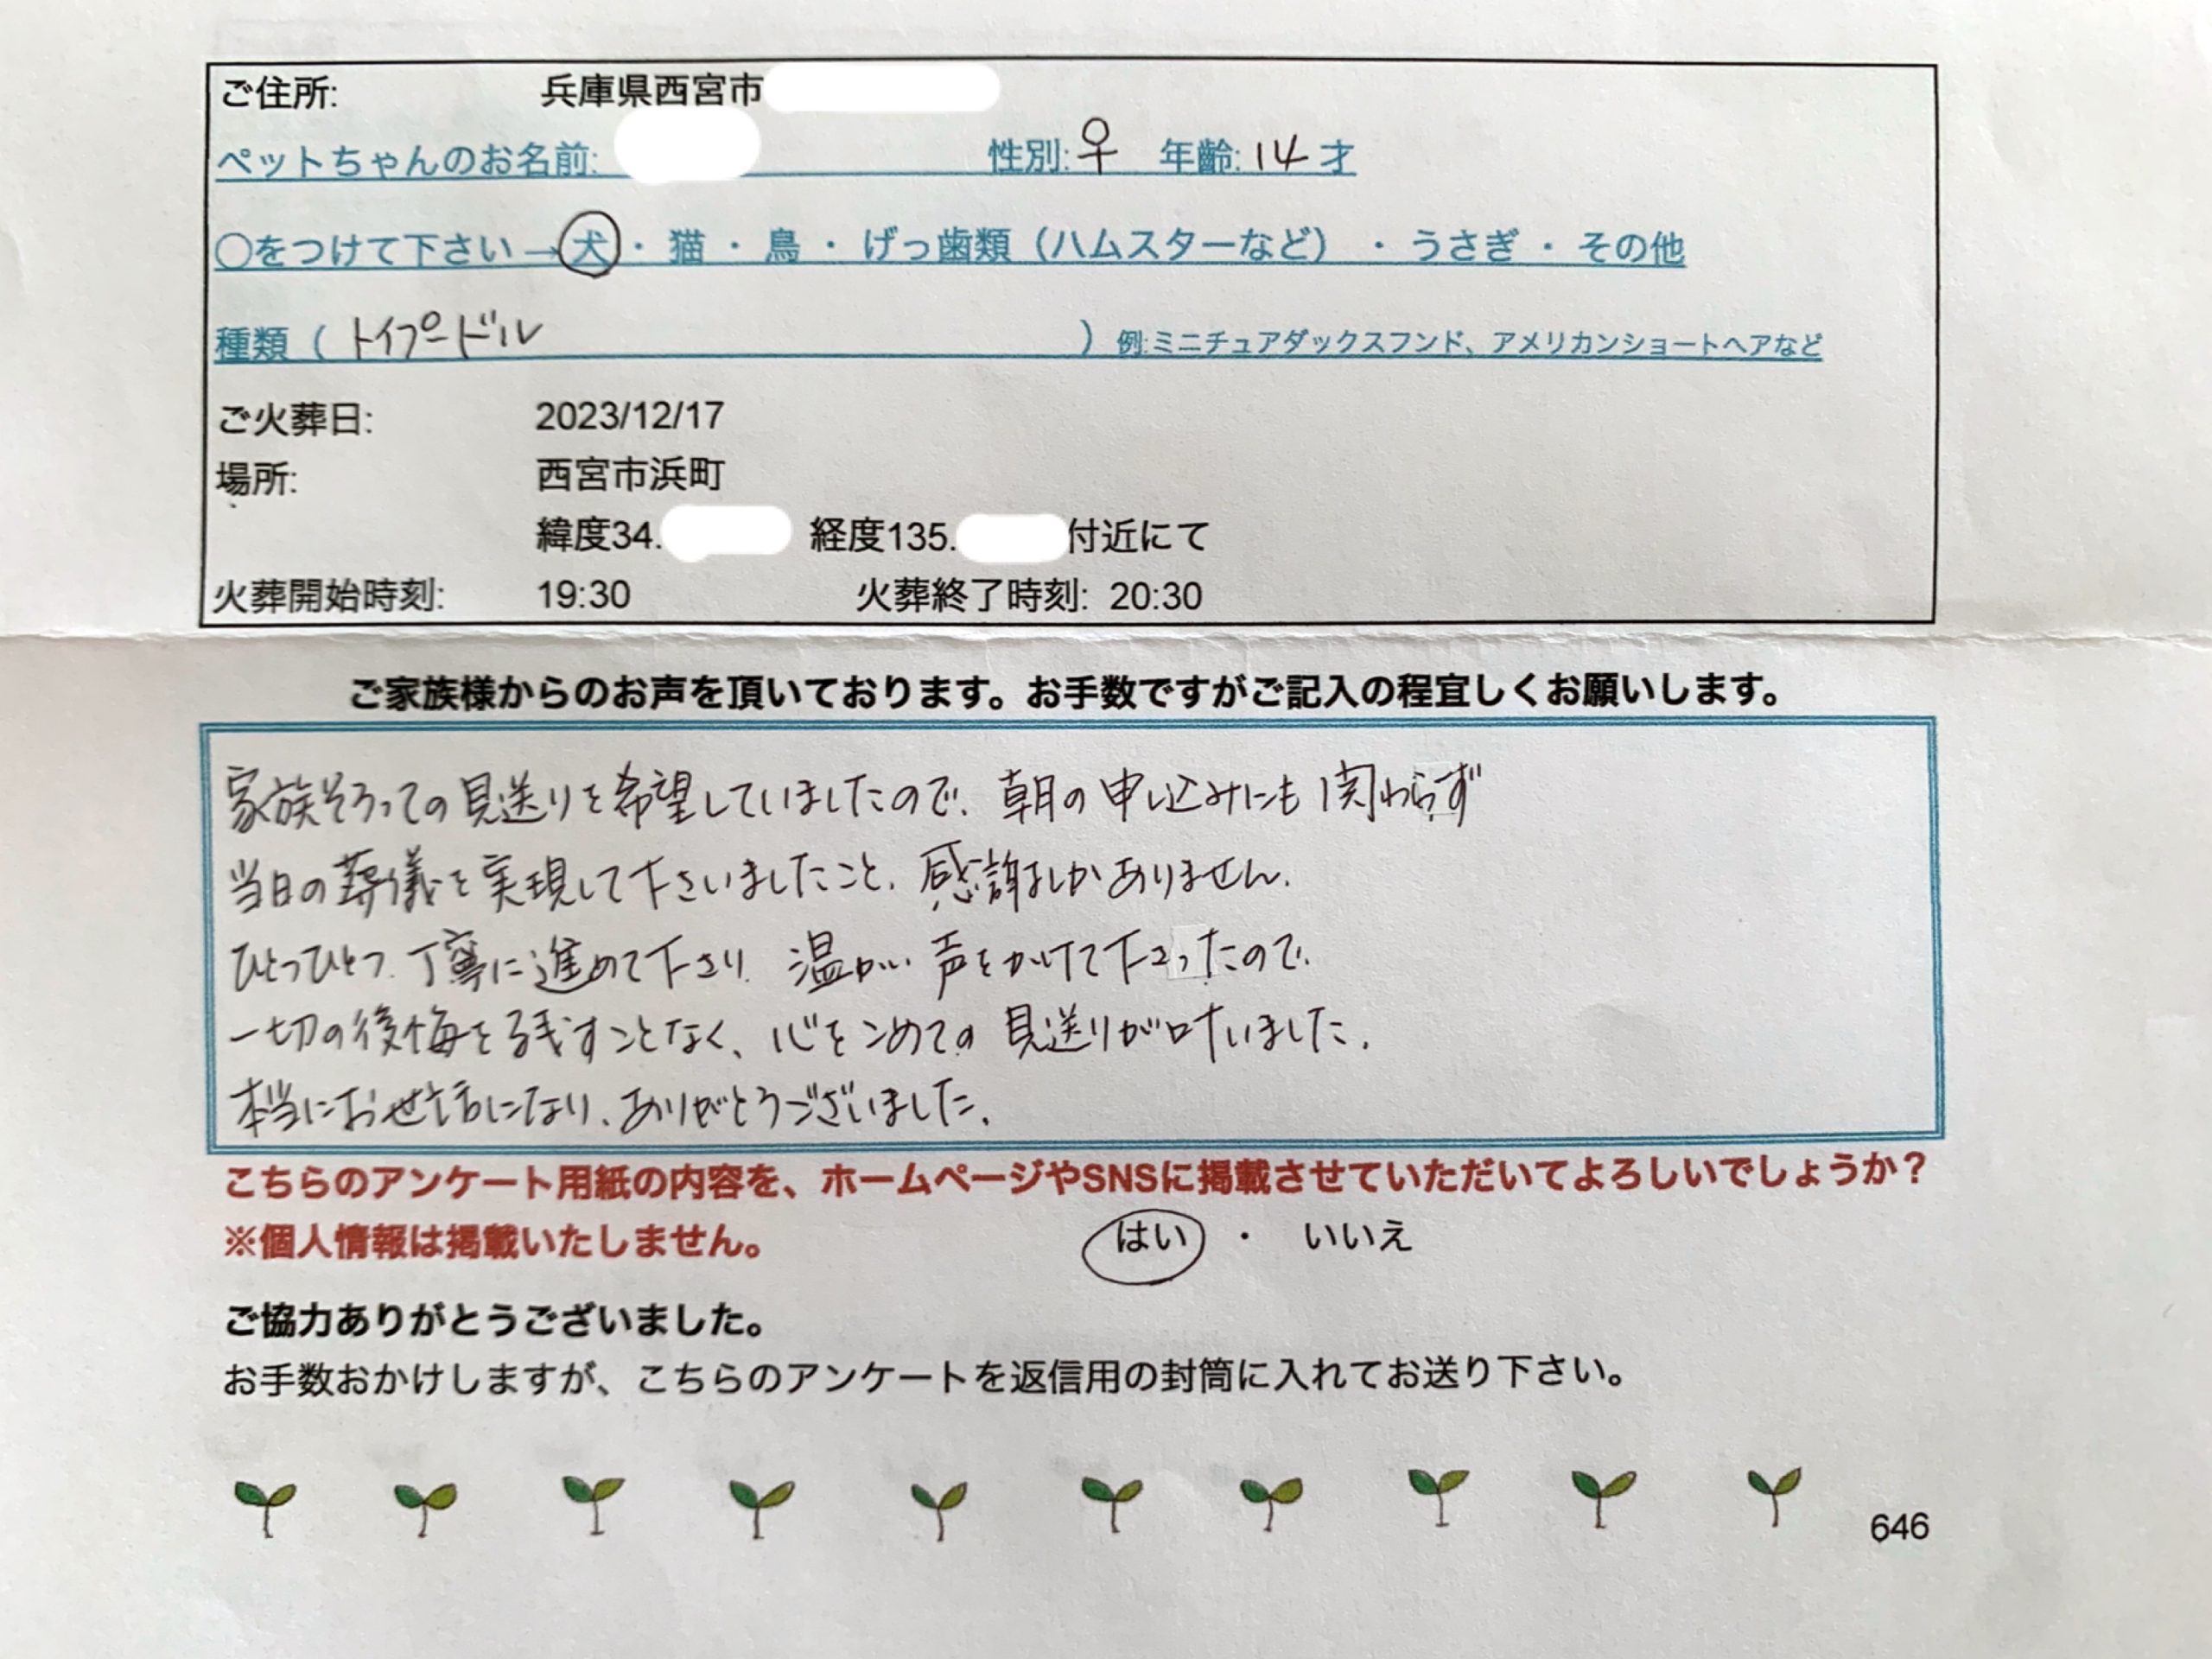 ご住所: 兵庫県西宮市
ペットちゃんのお名前: 性別:♀ 年齢:14才
〇をつけて下さい→犬・猫・鳥・げっ歯類（ハムスターなど）・うさぎ・その他
種類（トイプードル）例:ミニチュアダックスフンド、アメリカンショートヘアなど
ご火葬日: 2023/12/17
場所: 西宮市浜町
緯度34. 経度135. 付近にて
火葬開始時刻: 19:30 火葬終了時刻: 20:30
ご家族様からのお声を頂いております。お手数ですがご記入の程宜しくお願いします。
家族そろっての見送りを希望していましたので、朝の申し込みにも関わらず
当日の葬儀を実現して下さいましたこと、感謝しかありません。
ひとつひとつ、丁寧に進めて下さり、温かい声をかけて下さったので、
一切の後悔を残すことなく、心をこめての見送りが叶いました。
本当にお世話になり、ありがとうございました。
こちらのアンケート用紙の内容を、ホームページやSNSに掲載させていただいてよろしいでしょうか？
※個人情報は掲載いたしません。 はい ・ いいえ
ご協力ありがとうございました。
お手数おかけしますが、こちらのアンケートを返信用の封筒に入れてお送り下さい。
646